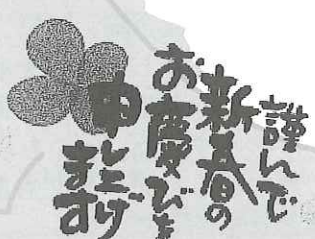 謹んで
新春の
お慶びを
申し上げ
ます